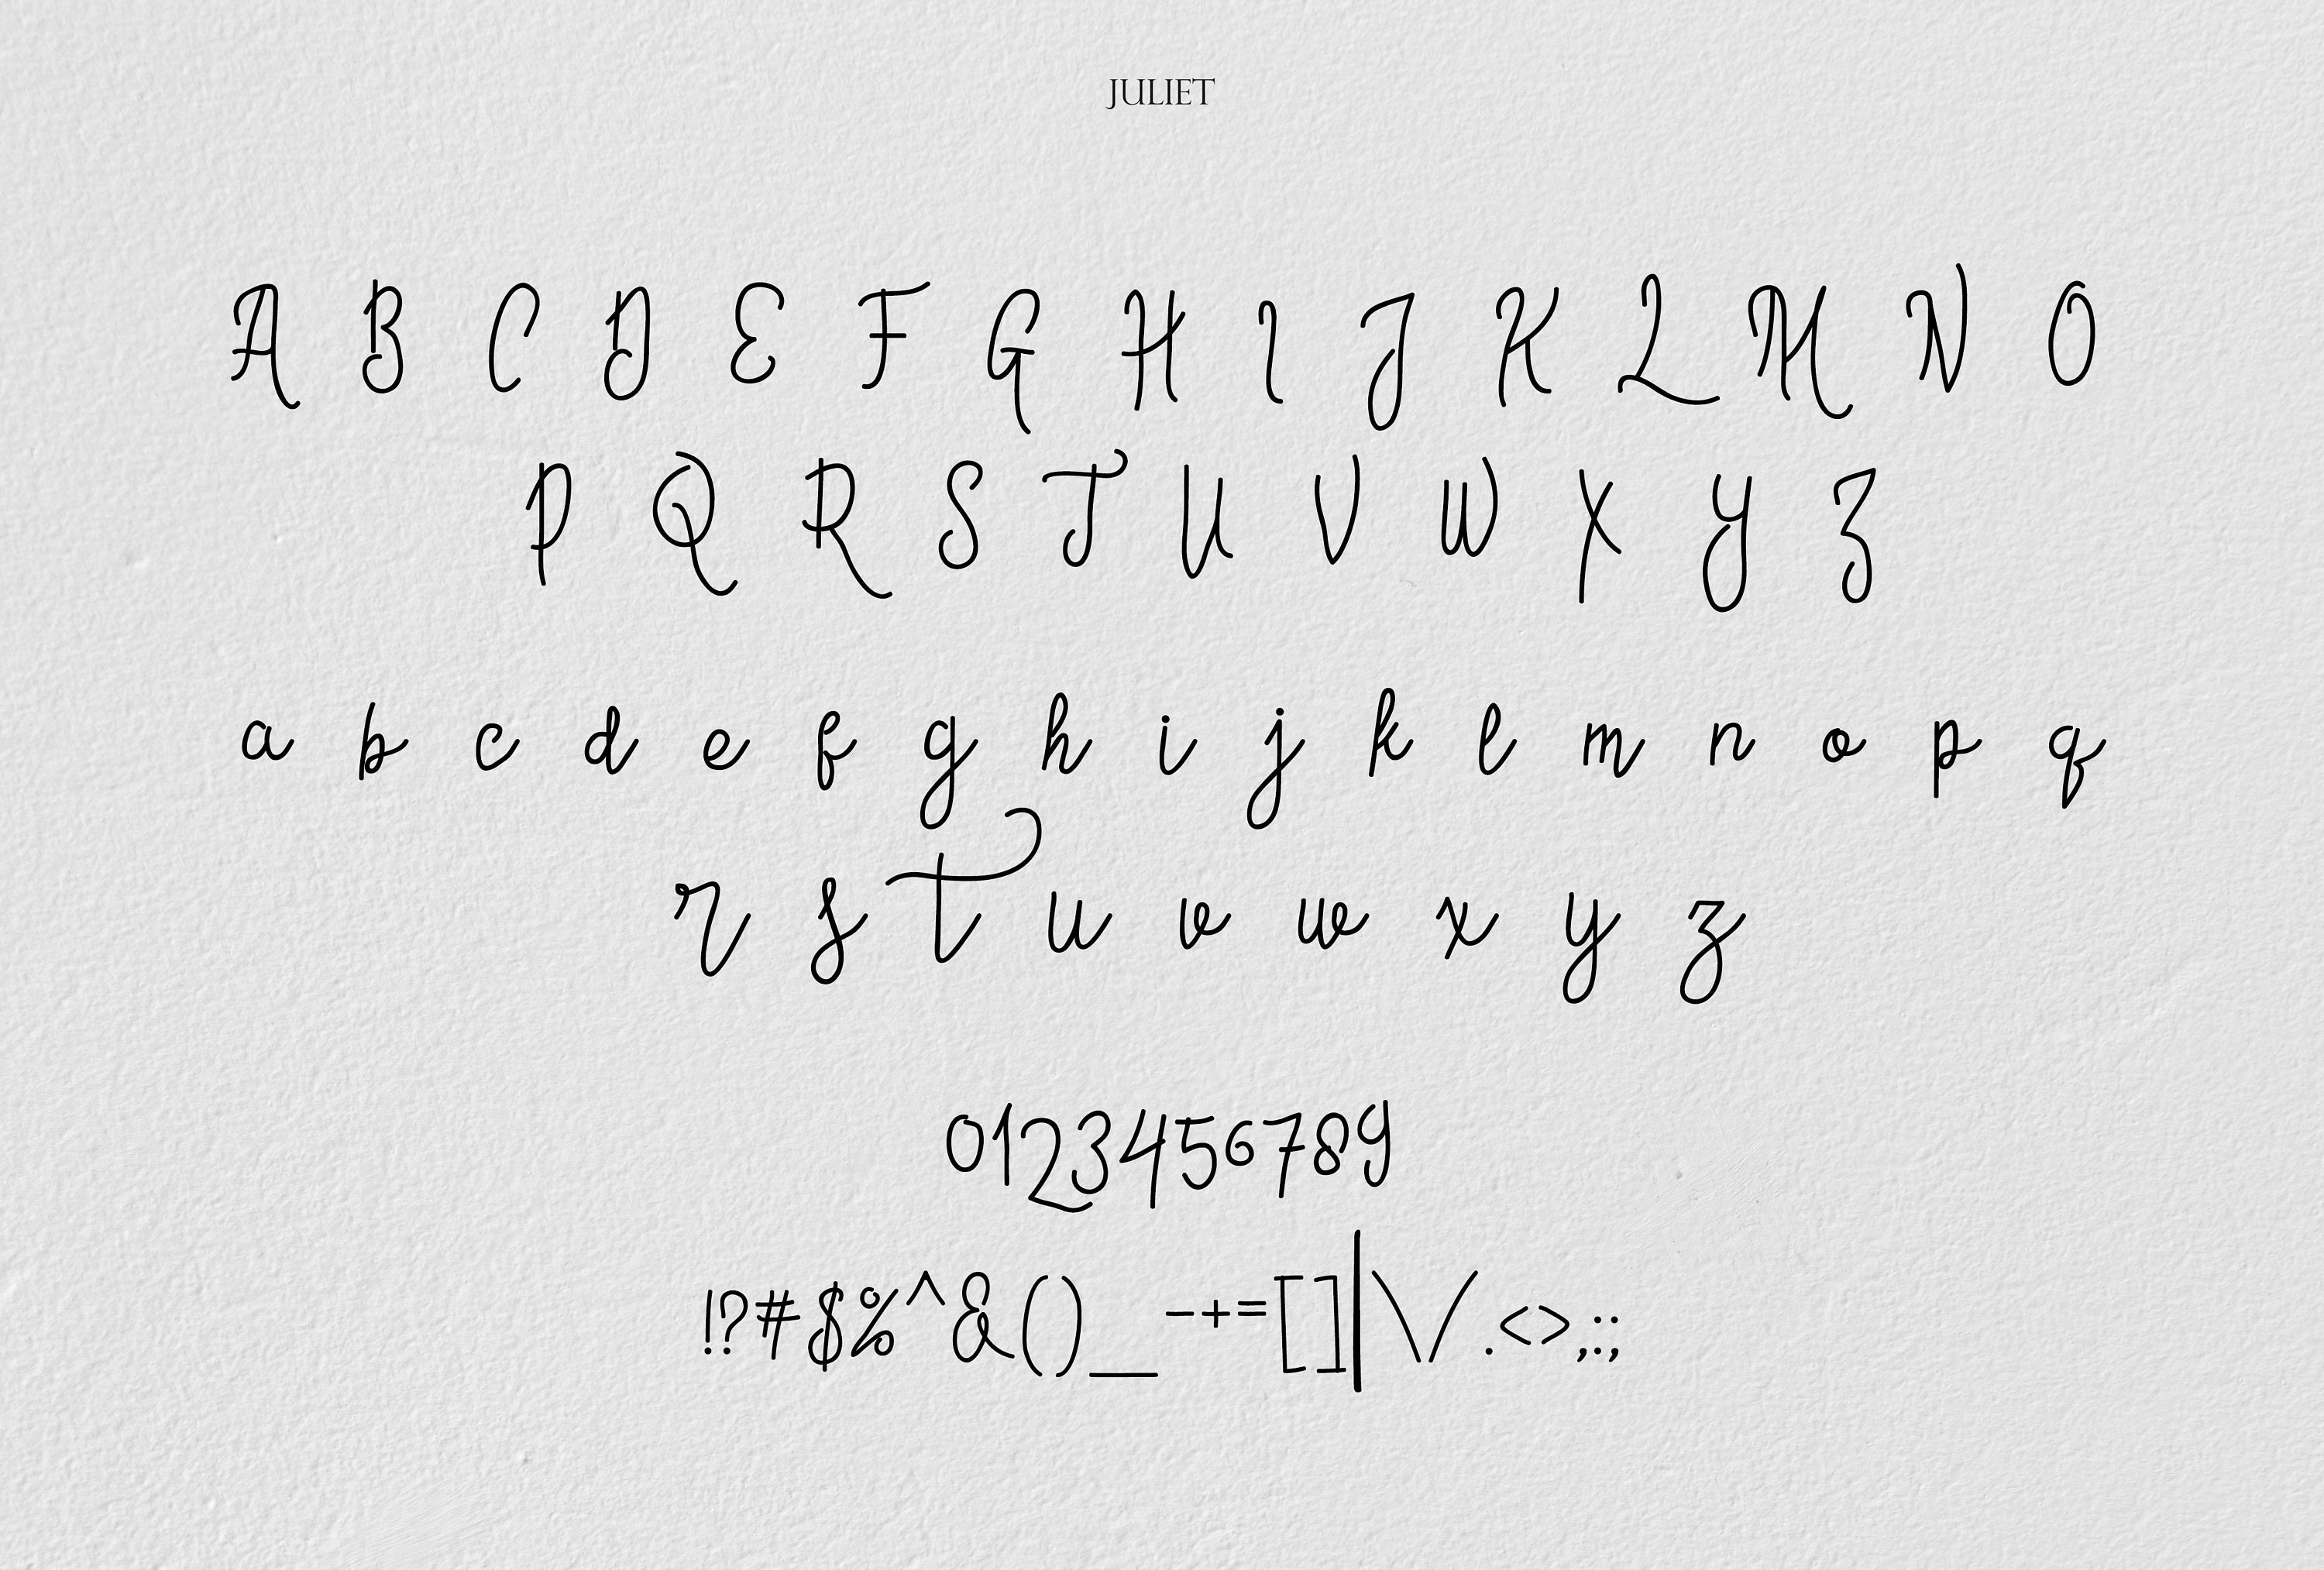 JULIET
A B C D E F G H I J K L M N O
P Q R S T U V W X Y Z
a b c d e f g h i j k l m n o p q
r s t u v w x y z
0123456789
!?#$%^&()_-+=[]|\/.<>,:;